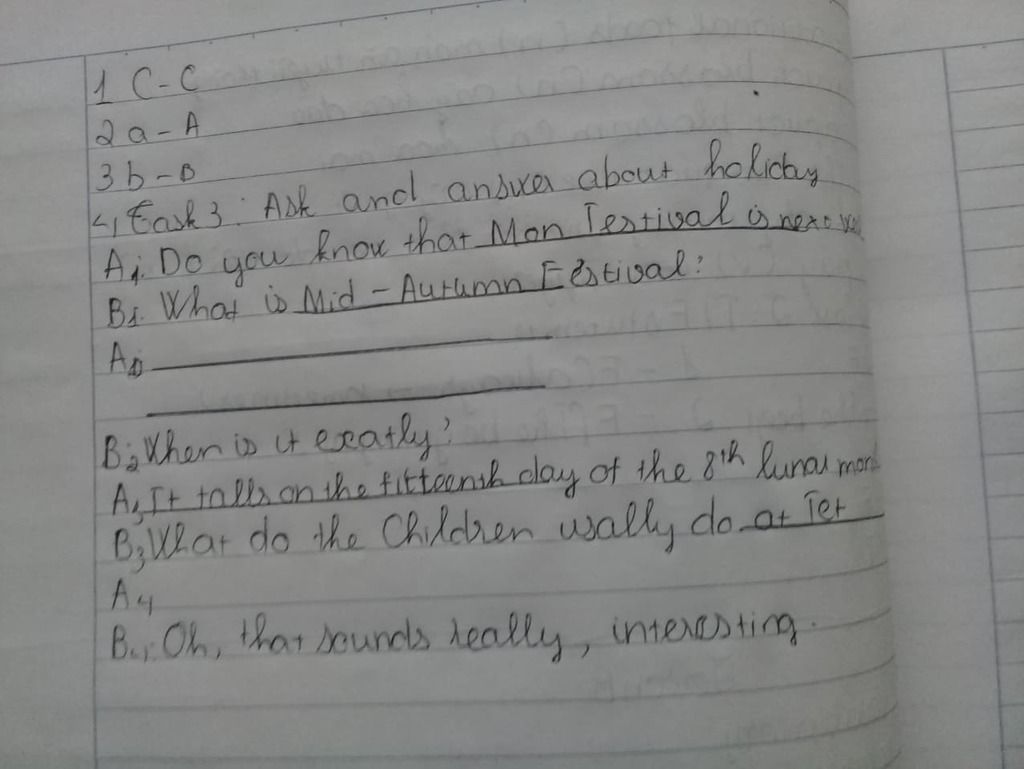 1 C-C
2 a-A
3 b-B
4, Task 3: Ask and answer about holiday
A1: Do you know that Mon Festival is next
B1: What is Mid-Autumn Festival?
A2
B2: When is it exatly?
A3 It falls on the fifteenth day of the 8th lunar mon
B3 What do the Children usally do at Tet
A4
B4: Oh, that sounds really, interesting.